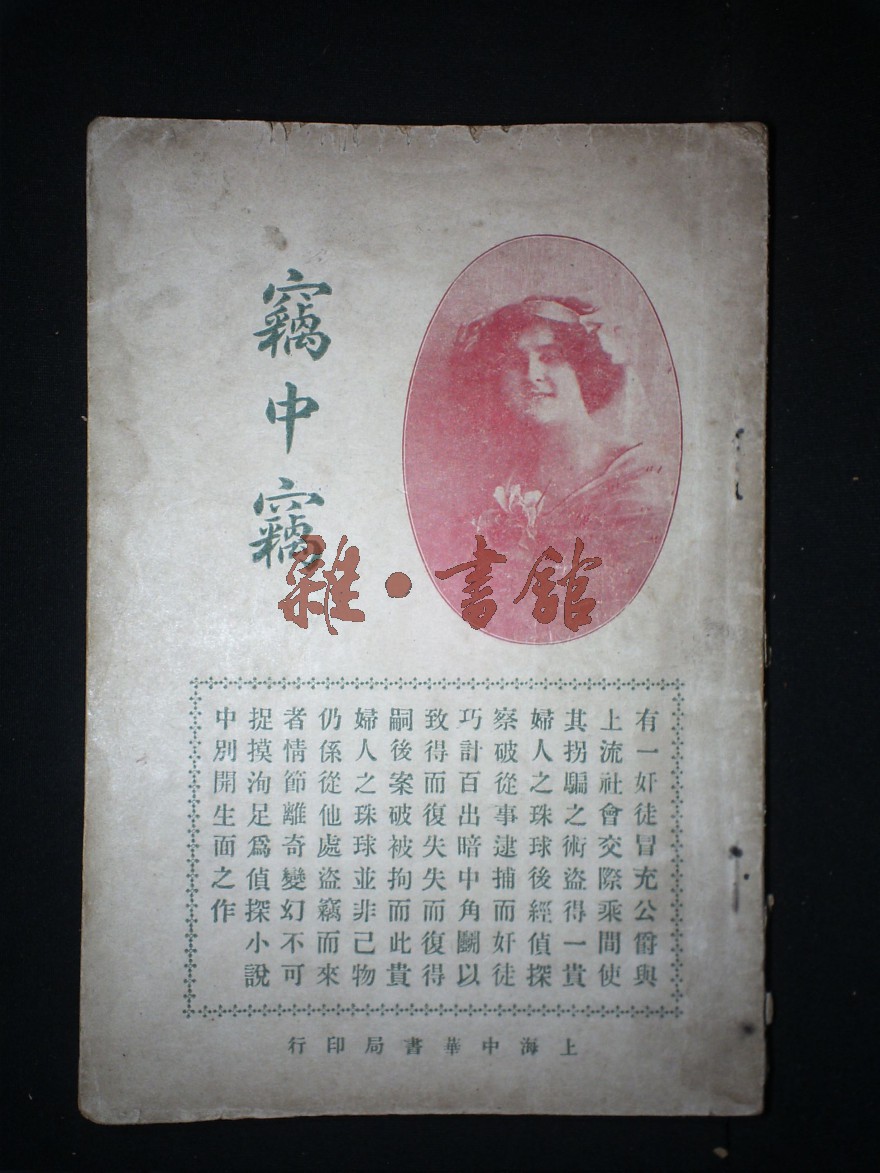 竊中竊
雜·書館
有一奸徒冒充公爵與
上流社會交際乘間使
其拐騙之術盜得一貴
婦人之珠球後經偵探
察破從事逮捕而奸徒
巧計百出暗中角鬬以
致得而復失失而復得
嗣後案破被拘而此貴
婦人之珠球並非己物
仍係從他處盜竊而來
者情節離奇變幻不可
捉摸洵足爲偵探小說
中別開生面之作
上海中華書局印行